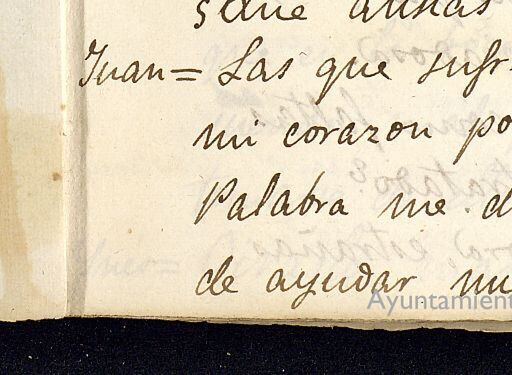 ¿Que ansias
Juan = Las que sufr
mi corazon po
Palabra me d
de ayudar mi
Ayuntamient